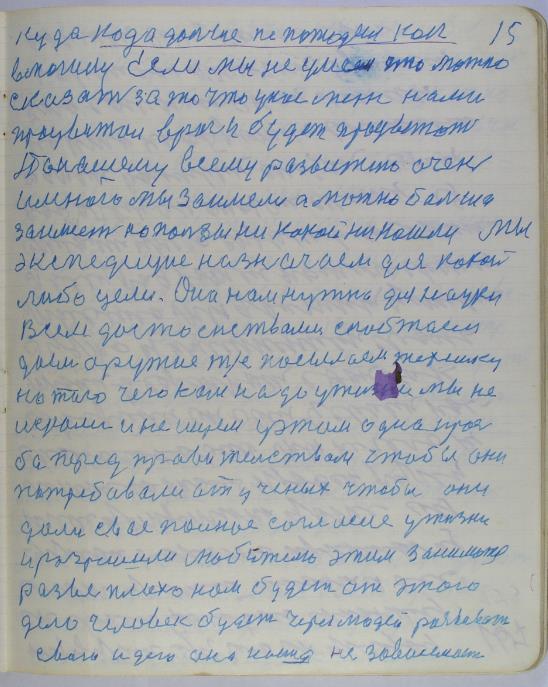 куда кода долние не попходил как 15
вмогилу Если мы не умем то можно
сказат за то что укас меж нами
процвятал врагь будет процвятат
По нашему всему развитию очен
и много мы заимели а можно болша
заимет но ползы ни какой ни нашли мы
экспедицие назначаем для какой
либо цели. Она нам нужна для науки
Всем достоенствами снобжаем
даем оружие т/е посылаем технику
на таго чего нам надо у жизни мы не
искали и не ищем у этом одна прос
ба перед правителством чтобы они
потребавали от ученых чтобы они
дали свае полное согласие у жизни
и розрешили любителю этим заниматся
разве плохо нам будет от этого
дело человек будет через людей развеват
сваю идею она наша не зависемост